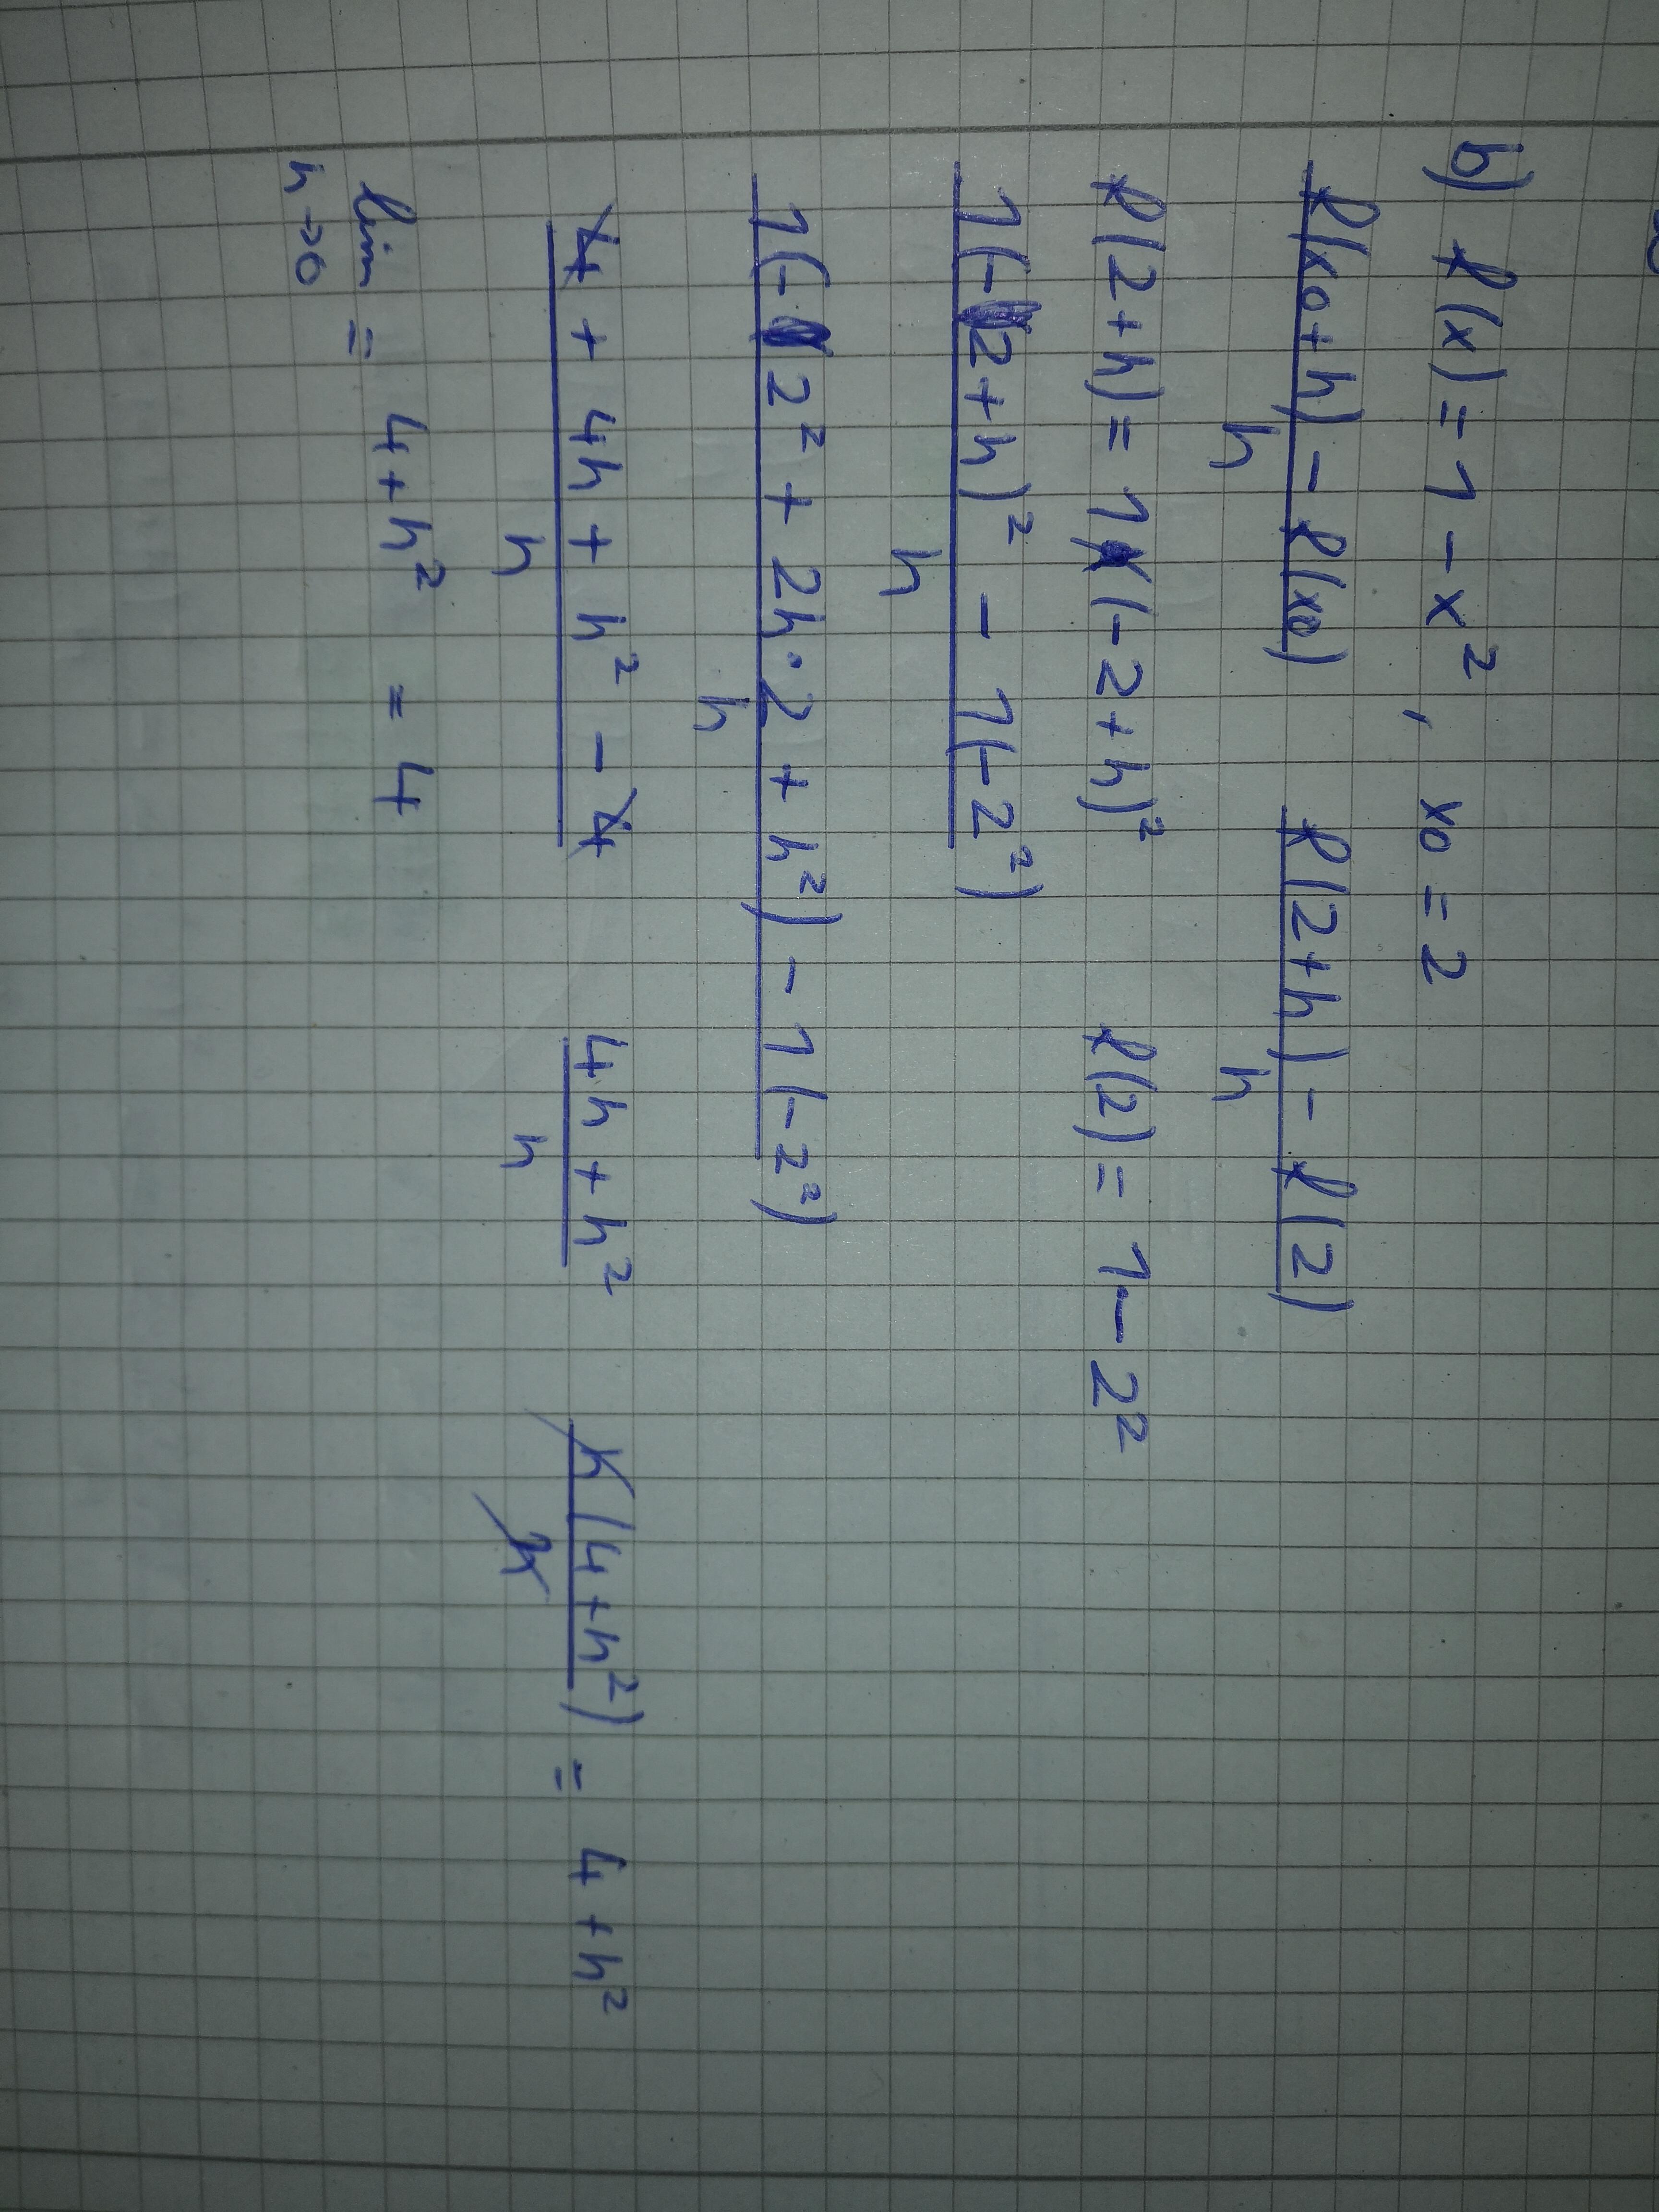 b) f(x) = 1 - x², x0 = 2
f(x0+h) - f(x0) / h    f(2+h) - f(2) / h
f(2+h) = 1(-2+h)²    f(2) = 1 - 2²
1(-(2+h)² - 1(-2²) / h
1(- 2² + 2h·2 + h²) - 1(-2²) / h
4 + 4h + h² - 4 / h    4h + h² / h    h(4+h²) / h = 4 + h²
lim = 4+h² = 4
h→0